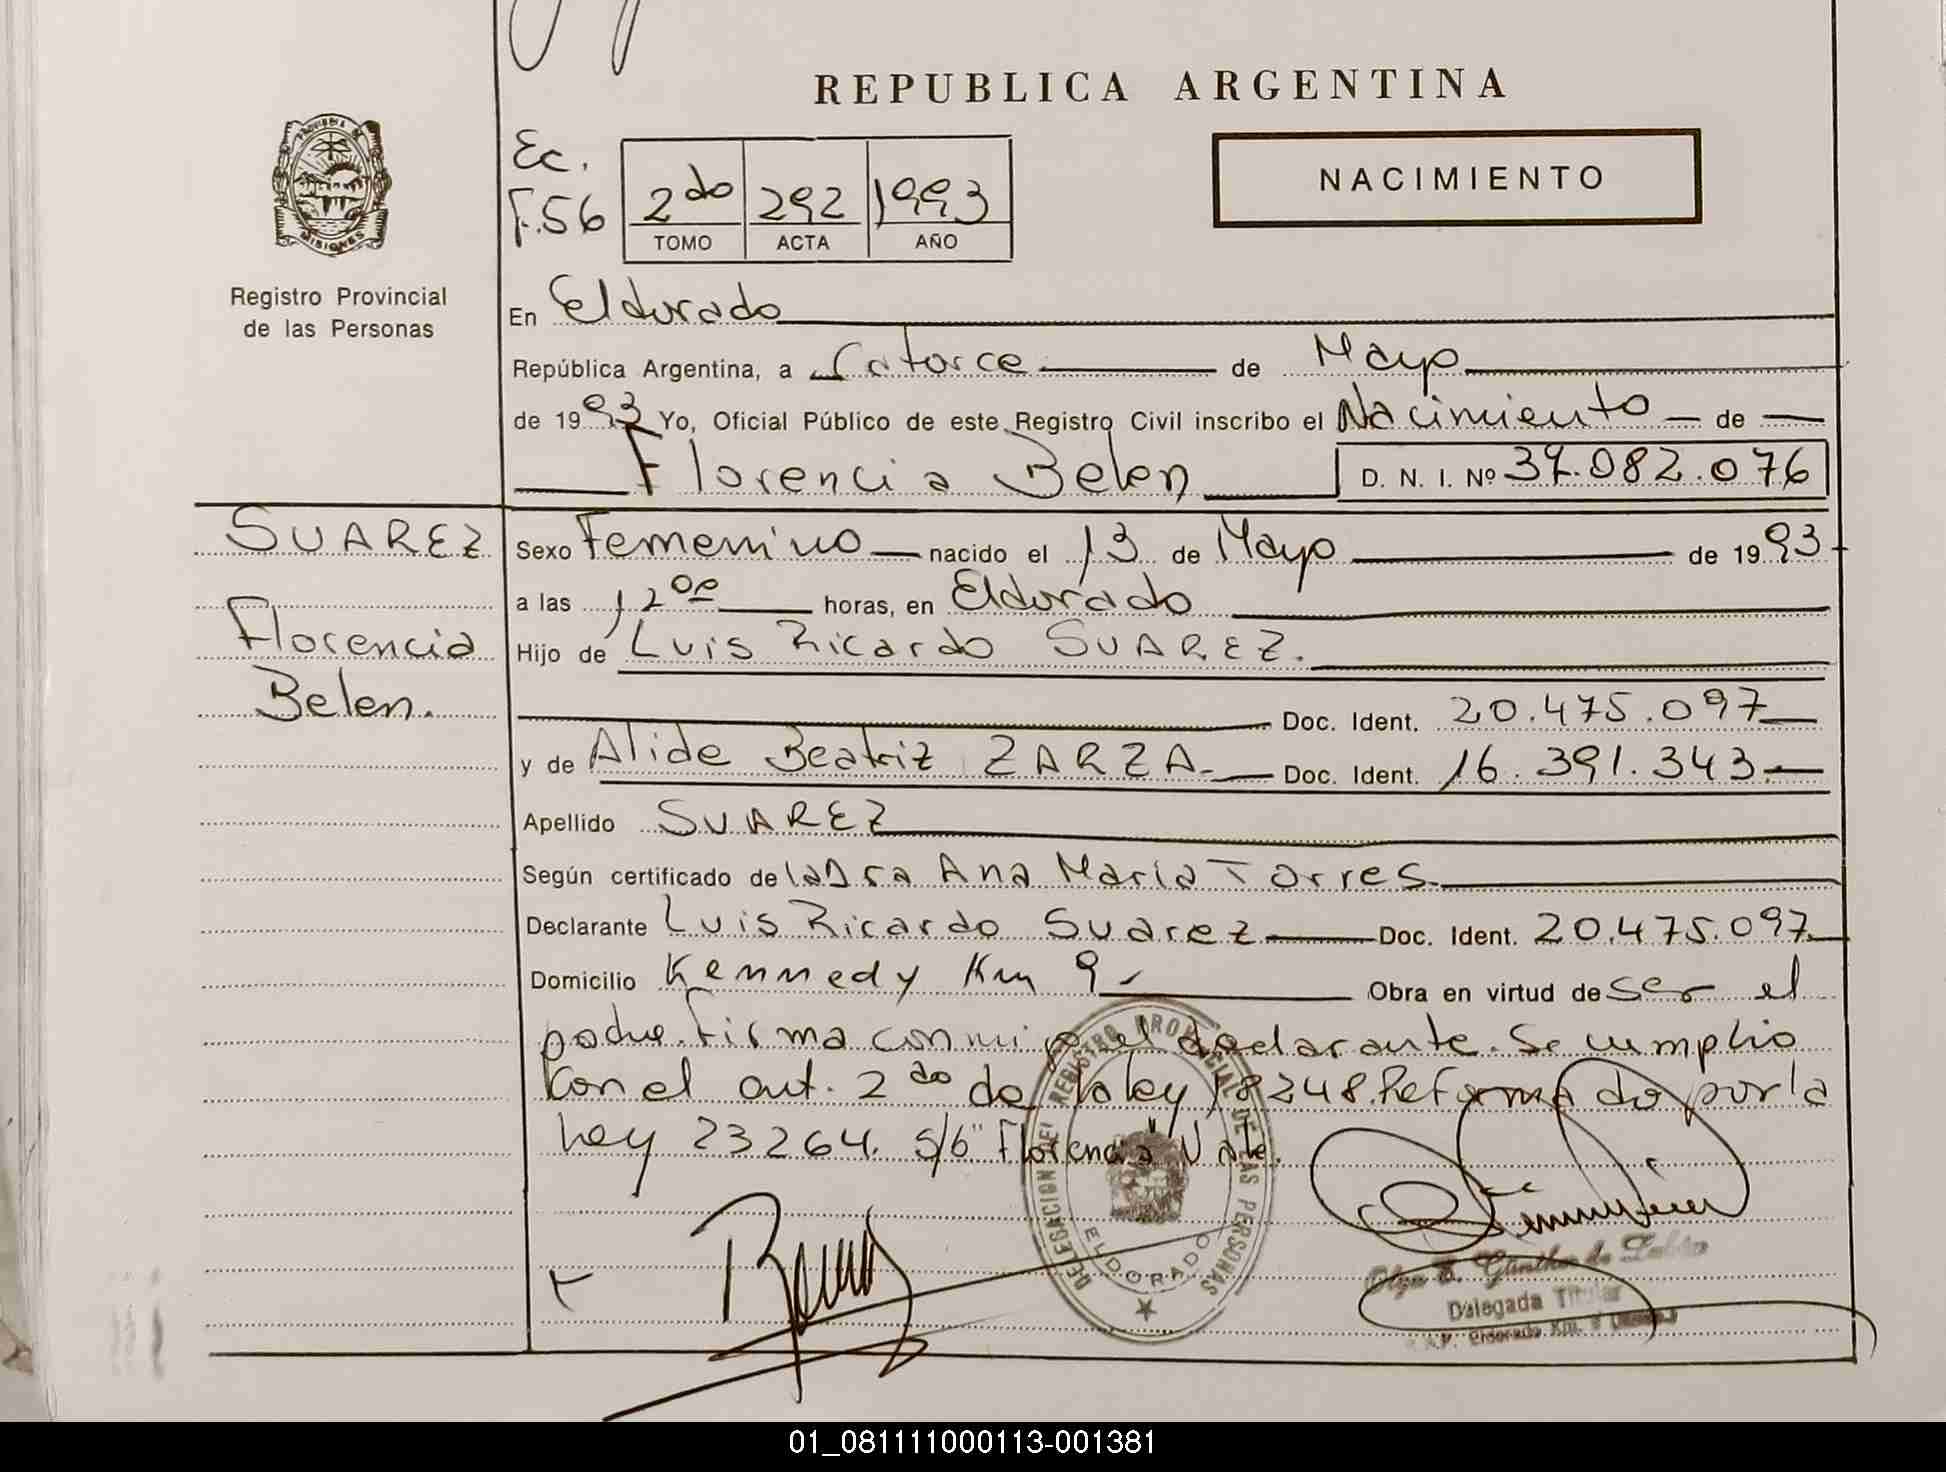 REPUBLICA ARGENTINA
PROVINCIA DE
MISIONES
Registro Provincial
de las Personas
Ec.
F.56
2do 292 1993
TOMO ACTA AÑO
NACIMIENTO
En Eldorado
República Argentina, a Catorce de Mayo
de 1993 Yo, Oficial Público de este Registro Civil inscribo el Nacimiento de
Florencia Belen D. N. I. Nº 37.082.076
SUAREZ
Florencia
Belen.
Sexo Femenino nacido el 13 de Mayo de 1993
a las 12 00 horas, en Eldorado
Hijo de Luis Ricardo SUAREZ.
Doc. Ident. 20.475.097
y de Alide Beatriz ZARZA Doc. Ident. 16.391.343
Apellido SUAREZ
Según certificado de la Dra Ana Maria Torres
Declarante Luis Ricardo Suarez Doc. Ident. 20.475.097
Domicilio Kennedy Km 9 Obra en virtud de ser el
padre. Firma conmigo el declarante. Se cumplio
con el art. 2do de la ley 18248. Reformado por la
Ley 23264. S/b "Florencia" Vale.
DELEGACION DEL REGISTRO PROVINCIAL DE LAS PERSONAS
ELDORADO
Olga E. Günther de
Delegada Titular
Eldorado Km. 9
01_081111000113-001381